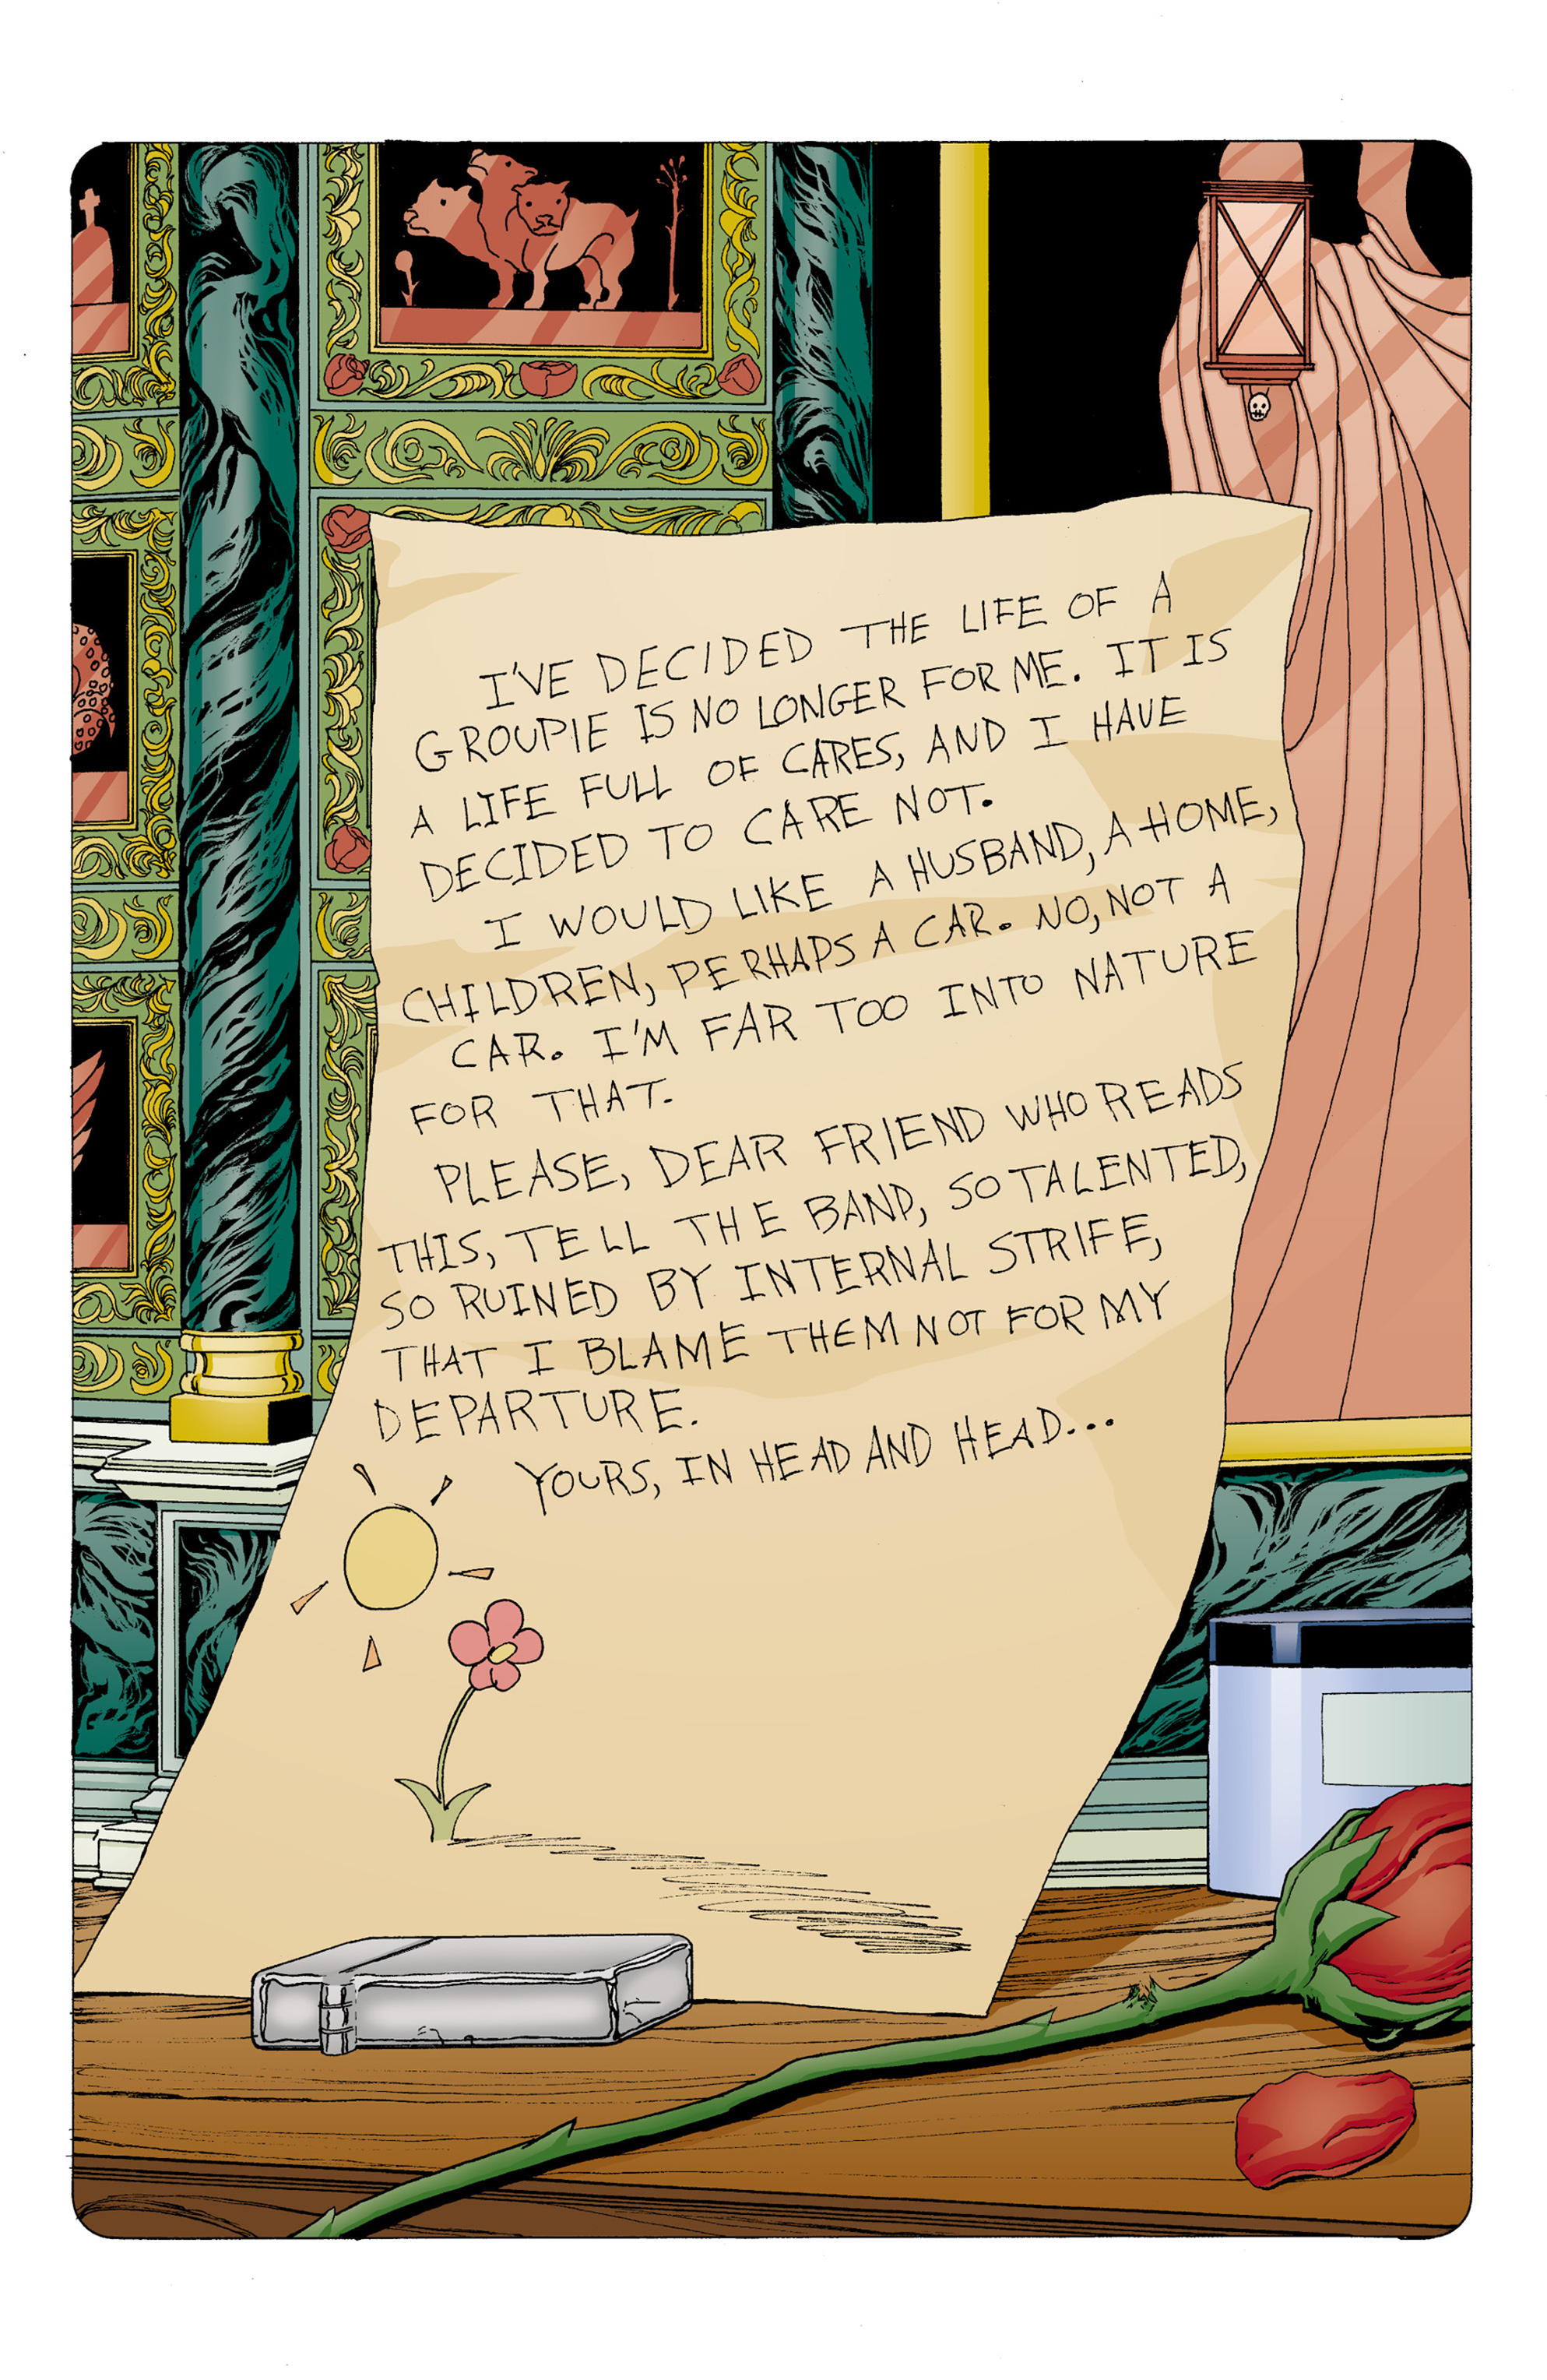 I'VE DECIDED THE LIFE OF A
GROUPIE IS NO LONGER FOR ME. IT IS
A LIFE FULL OF CARES, AND I HAVE
DECIDED TO CARE NOT.
I WOULD LIKE A HUSBAND, A HOME,
CHILDREN, PERHAPS A CAR. NO, NOT A
CAR. I'M FAR TOO INTO NATURE
FOR THAT.
PLEASE, DEAR FRIEND WHO READS
THIS, TELL THE BAND, SO TALENTED,
SO RUINED BY INTERNAL STRIFE,
THAT I BLAME THEM NOT FOR MY
DEPARTURE.
YOURS, IN HEAD AND HEAD...